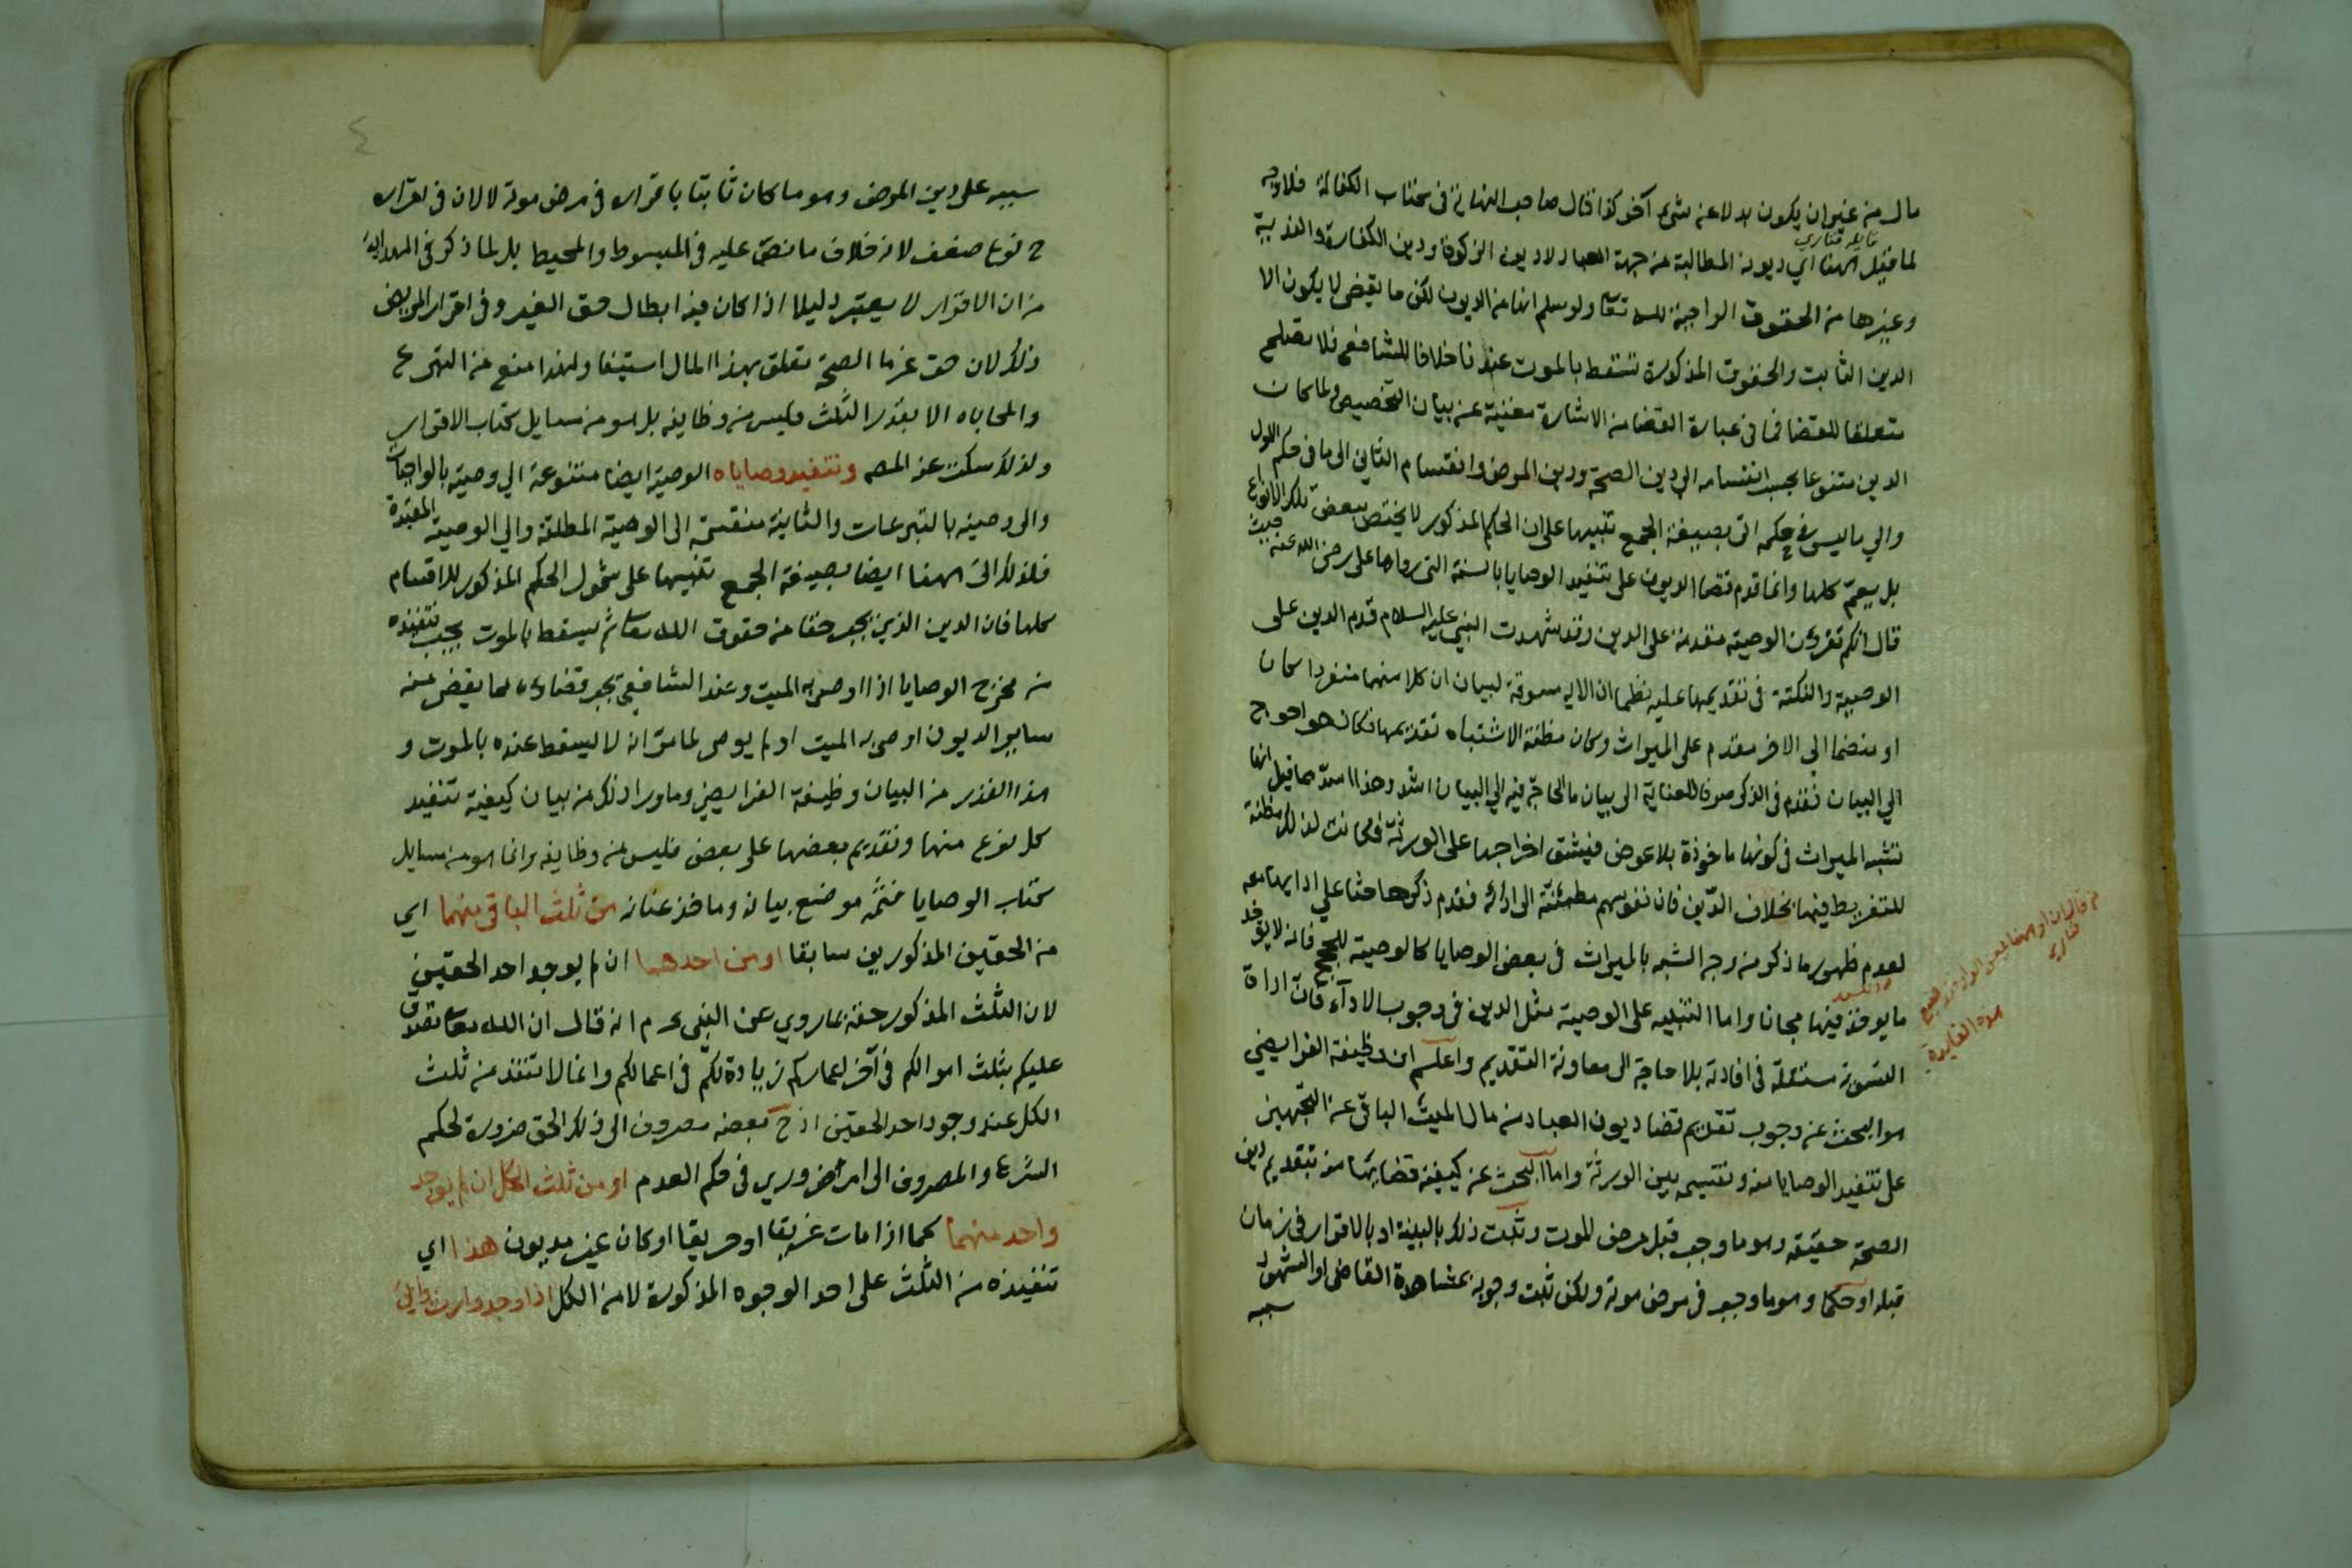 مال من غير ان يكون بدلا عن شيء آخر كذا قال صاحب النهاية في كتاب الكفالة فلا وجه
قايله فناري
لما قيل ههنا اي ديون المطالبة من جهة العباد لا ديون الزكوة ودين الكفارة والفدية
وغيرها من الحقوق الواجبة لله تعا ولو سلم انها من الديون لكن ما يقضى لا يكون الا
الدين الثابت والحقوق المذكورة تسقط بالموت عندنا خلافا للشافعي فلا تصلح
متعلقا للقضا فما في عبارة القضا من الاشارة مغنية عن بيان التخصيص ولما كان
الدين متنوعا بحسب انقسامه الى دين الصحة ودين المرض وانقسام الثاني الى ما في حكم الاول
والي ما ليس في حكمه اتى بصيغة الجمع تنبيها على ان الحكم المذكور لا يختص ببعض تلك الانواع
بل يعم كلها وانما قدم قضا الديون على تنفيذ الوصايا بالسنة التي رواها علي رضي الله عنه حيث
قال انكم تقرؤن الوصية مقدمة على الدين وقد شهدت النبي عليه السلام قدم الدين على
الوصية والنكتة في تقديمها عليه نظما ان الاية مسوقة لبيان ان كلا منهما منفردا كان
او منضما الى الاخر مقدم على الميراث وكان مظنة الاشتباه تقديمها فكان هو احوج
الي البيان فقدم في الذكر صرفا للعناية الى بيان ما الحاجة فيه الي البيان اشد وهذا اسد مما قيل انها
تشبه الميراث في كونها ماخوذة بلا عوض فيشق اخراجها على الورثة فكانت لذلك مظنة
للتفريط فيها بخلاف الدين فان نفوسهم مطمئنة الى ادائه فقدم ذكرها حثا علي ادايها معه
لعدم ظهور ما ذكر من وجه الشبه بالميراث في بعض الوصايا كالوصية للحج فانه لا يؤخذ
ما يوخذ فيها مجانا واما التنبيه على الوصية مثل الدين في وجوب الاداء فان اداة
التسوية مستقلة في افادته بلا حاجة الى معاونة التقديم واعلم ان وظيفة الفرايضي
هو البحث عن وجوب تقديم قضا ديون العباد من مال الميت الباقي عن التجهيز
على تنفيذ الوصايا منه وتقسيمه بين الورثة واما البحث عن كيفية قضايها منه بتقديم دين
الصحة حقيقة وهو ما وجب قبل مرض الموت وثبت ذلك بالبينة او بالاقرار في زمان
قبله او حكما وهو ما وجب في مرض موته ولكن ثبت وجوبه بمشاهدة القاضي او الشهود
سببه
هذه الفايدة
فناري
٤
سببه على دين المرض وهو ما كان ثابتا باقراره في مرض موته لا لان في اقراره
ح نوع ضعف لانه خلاف ما نص عليه في المبسوط والمحيط بل لما ذكر في الهداية
من ان الاقرار لا يعتبر دليلا اذا كان فيه ابطال حق الغير وفي اقرار المريض
ذلك لان حق غرما الصحة تعلق بهذا المال استيفا ولهذا منع من التبرع
والمحاباه الا بقدر الثلث فليس من وظايفه بل هو من مسايل كتاب الاقرار
ولذلك سكت عنه المص وتنفيذ وصاياه الوصية ايضا متنوعة الي وصية بالواجبات
والى وصية بالتبرعات والثانية منقسمة الى الوصية المطلقة والي الوصية المقيدة
فلذلك اتى ههنا ايضا بصيغة الجمع تنبيها على شمول الحكم المذكور للاقسام
كلها فان الدين الذي يجب حقا من حقوق الله تعا ثم يسقط بالموت يجب تنفيذه
من مخرج الوصايا اذا اوصى به الميت وعند الشافعي يجب قضاؤه كما يقضى عنه
ساير الديون اوصى به الميت او لم يوص لما مر انه لا يسقط عنده بالموت و
هذا القدر من البيان وظيفة الفرايضي وما ورا ذلك من بيان كيفية تنفيذ
كل نوع منها وتقديم بعضها على بعض فليس من وظايفه وانما هو من مسايل
كتاب الوصايا فثمه موضع بيانه وماخذ عنانه من ثلث الباقي منهما اي
من الحقين المذكورين سابقا او من احدهما ان لم يوجد احد الحقين
لان الثلث المذكور حقه بما روي عن النبي عم انه قال ان الله تعا تصدق
عليكم بثلث اموالكم في آخر اعماركم زيادة لكم في اعمالكم وانما لا تنفذ من ثلث
الكل عند وجود احد الحقين اذ ح بعضه مصروف الى ذلك الحق ضرورة لحكم
الشرع والمصروف الى امر ضروري في حكم العدم او من ثلث الكل ان لم يوجد
واحد منهما كما اذا مات غريقا او حريقا او كان غير مديون هذا اي
تنفيذه من الثلث على احد الوجوه المذكورة لا من الكل اذا وجد وارث